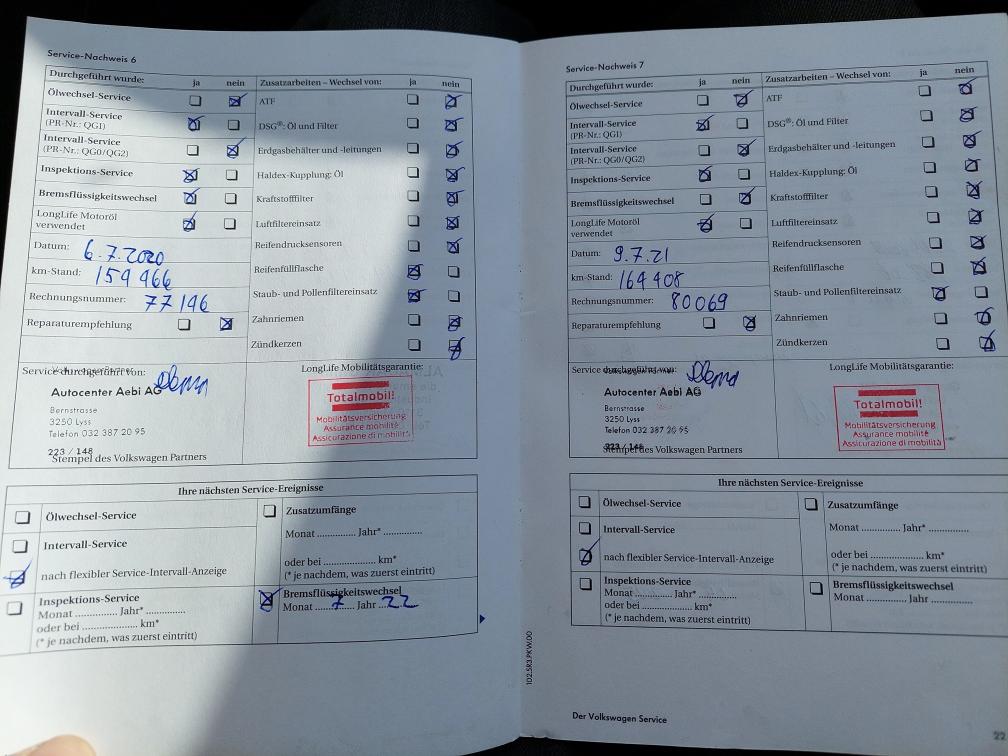 Service-Nachweis 6
Durchgeführt wurde: ja nein
Ölwechsel-Service
Intervall-Service
(PR-Nr.: QGI)
Intervall-Service
(PR-Nr.: QG0/QG2)
Inspektions-Service
Bremsflüssigkeitswechsel
LongLife Motoröl
verwendet
Datum: 6.7.2020
km-Stand: 159 466
Rechnungsnummer: 77146
Reparaturempfehlung
Zusatzarbeiten – Wechsel von: ja nein
ATF
DSG®: Öl und Filter
Erdgasbehälter und -leitungen
Haldex-Kupplung: Öl
Kraftstofffilter
Luftfiltereinsatz
Reifendrucksensoren
Reifenfüllflasche
Staub- und Pollenfiltereinsatz
Zahnriemen
Zündkerzen
Service durchgeführt von:
Autocenter Aebi AG
Bernstrasse
3250 Lyss
Telefon 032 387 20 95
223 / 148
Stempel des Volkswagen Partners
LongLife Mobilitätsgarantie:
Totalmobil!
Mobilitätsversicherung
Assurance mobilité
Assicurazione di mobilità
Ihre nächsten Service-Ereignisse
Ölwechsel-Service
Intervall-Service
nach flexibler Service-Intervall-Anzeige
Inspektions-Service
Monat .............. Jahr* ..............
oder bei .................... km*
(* je nachdem, was zuerst eintritt)
Zusatzumfänge
Monat .............. Jahr* ..............
oder bei .................... km*
(* je nachdem, was zuerst eintritt)
Bremsflüssigkeitswechsel
Monat 7 Jahr 22
Service-Nachweis 7
Durchgeführt wurde: ja nein
Ölwechsel-Service
Intervall-Service
(PR-Nr.: QGI)
Intervall-Service
(PR-Nr.: QG0/QG2)
Inspektions-Service
Bremsflüssigkeitswechsel
LongLife Motoröl
verwendet
Datum: 9.7.21
km-Stand: 164 408
Rechnungsnummer: 80069
Reparaturempfehlung
Zusatzarbeiten – Wechsel von: ja nein
ATF
DSG®: Öl und Filter
Erdgasbehälter und -leitungen
Haldex-Kupplung: Öl
Kraftstofffilter
Luftfiltereinsatz
Reifendrucksensoren
Reifenfüllflasche
Staub- und Pollenfiltereinsatz
Zahnriemen
Zündkerzen
Service durchgeführt von:
Autocenter Aebi AG
Bernstrasse
3250 Lyss
Telefon 032 387 20 95
223 / 148
Stempel des Volkswagen Partners
LongLife Mobilitätsgarantie:
Totalmobil!
Mobilitätsversicherung
Assurance mobilité
Assicurazione di mobilità
Ihre nächsten Service-Ereignisse
Ölwechsel-Service
Intervall-Service
nach flexibler Service-Intervall-Anzeige
Inspektions-Service
Monat .............. Jahr* ..............
oder bei .................... km*
(* je nachdem, was zuerst eintritt)
Zusatzumfänge
Monat .............. Jahr* ..............
oder bei .................... km*
(* je nachdem, was zuerst eintritt)
Bremsflüssigkeitswechsel
Monat .............. Jahr ..............
102.5R3.PKW.00
Der Volkswagen Service
22